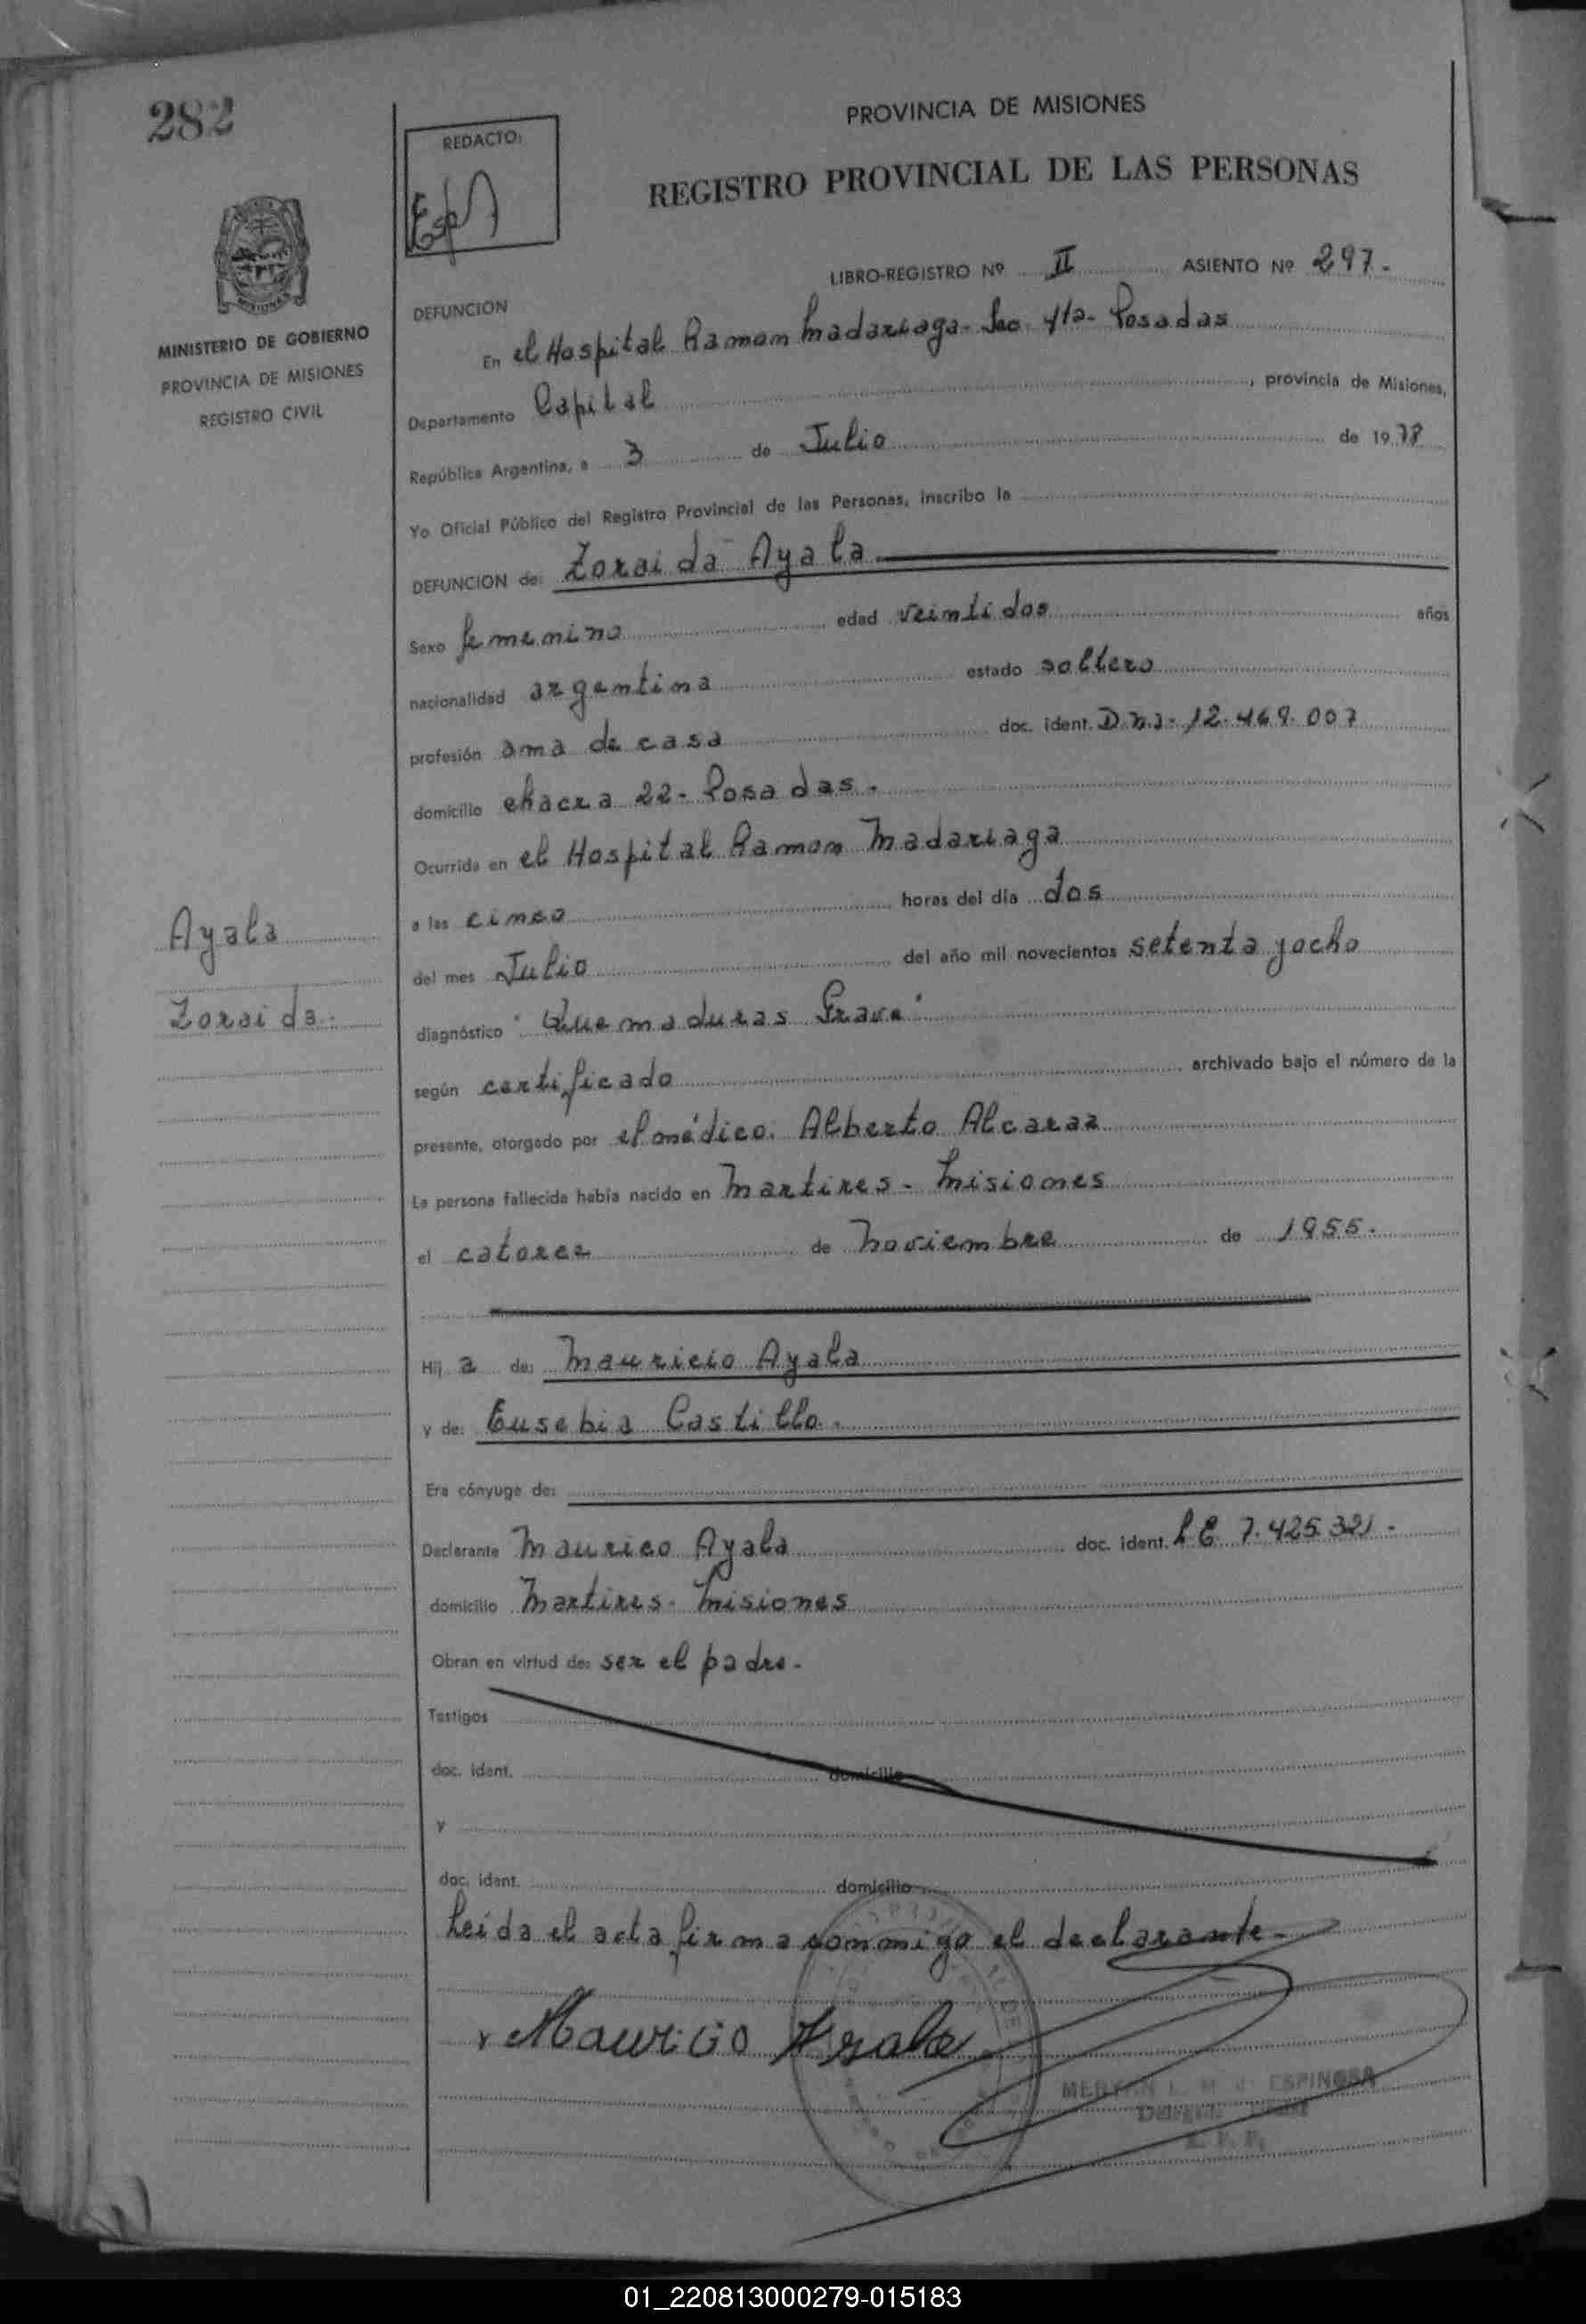 282
REDACTO:
PROVINCIA DE MISIONES
REGISTRO PROVINCIAL DE LAS PERSONAS
MINISTERIO DE GOBIERNO
PROVINCIA DE MISIONES
REGISTRO CIVIL
LIBRO-REGISTRO Nº II ASIENTO Nº 297.
DEFUNCION
En el Hospital Ramon Madariaga - Sec 4ta - Posadas
Departamento Capital, provincia de Misiones,
República Argentina, a 3 de Julio de 1978
Yo Oficial Público del Registro Provincial de las Personas, inscribo la
DEFUNCION de: Zoraida Ayala
Sexo femenino edad veintidos años
nacionalidad argentina estado soltero
profesión ama de casa doc. ident. D.N.I. 12.469.007
domicilio chacra 22 - Posadas.
Ocurrida en el Hospital Ramon Madariaga
a las cinco horas del día dos
Ayala
del mes Julio del año mil novecientos setenta y ocho
Zoraida.
diagnóstico "Quemaduras Grave"
según certificado archivado bajo el número de la
presente, otorgado por el médico. Alberto Alcaraz
La persona fallecida había nacido en Martires - Misiones
el catorce de Noviembre de 1955.
Hij a de: Mauricio Ayala
y de: Eusebia Castillo.
Era cónyuge de:
Declarante Maurico Ayala doc. ident. L E 7.425.321.
domicilio Martires - Misiones
Obran en virtud de: ser el padre.
Testigos
doc. ident. domicilio
y
doc. ident. domicilio
Leída el acta firma conmigo el declarante.
Mauricio Ayala
ESPINOSA
01_220813000279-015183